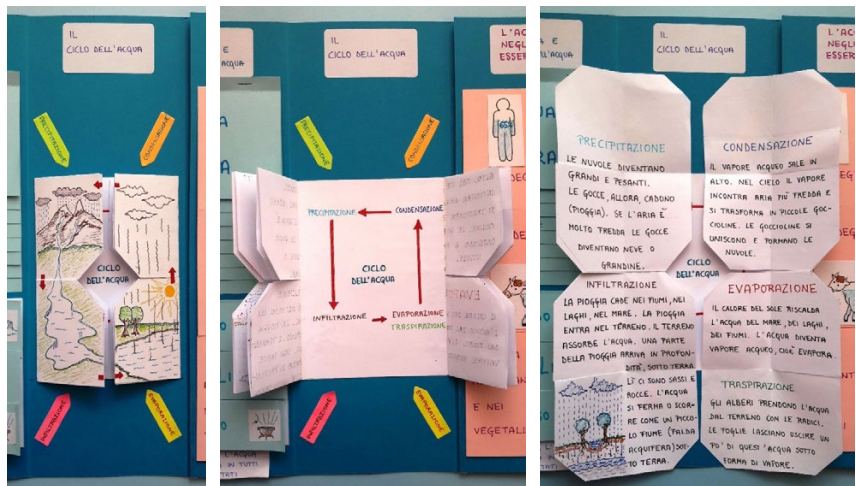 IL
CICLO DELL'ACQUA
PRECIPITAZIONE
CONDENSAZIONE
CICLO
DELL'ACQUA
INFILTRAZIONE
EVAPORAZIONE
E
ACQUA
IL
CICLO DELL'ACQUA
L'AC
NEGL
ESSER
PRECIPITAZIONE
CONDENSAZIONE
65%
A
PRECIPITAZIONE
CONDENSAZIONE
CICLO
DELL'ACQUA
INFILTRAZIONE
EVAPORAZIONE
TRASPIRAZIONE
INFILTRAZIONE
EVAPORAZIONE
E NEI
VEGETALI
IN TUTTI
TATI
A E
ACQUA
IL
CICLO DELL'ACQUA
L'AC
NEGL
ESSER
PRECIPITAZIONE
LE NUVOLE DIVENTANO
GRANDI E PESANTI.
LE GOCCE, ALLORA, CADONO
(PIOGGIA). SE L'ARIA È
MOLTO FREDDA LE GOCCE
DIVENTANO NEVE O
GRANDINE.
CONDENSAZIONE
IL VAPORE ACQUEO SALE IN
ALTO. NEL CIELO IL VAPORE
INCONTRA ARIA PIÙ FREDDA E
SI TRASFORMA IN PICCOLE GOC-
CIOLINE. LE GOCCIOLINE SI
UNISCONO E FORMANO LE
NUVOLE.
CICLO
DELL'ACQUA
INFILTRAZIONE
LA PIOGGIA CADE NEI FIUMI, NEI
LAGHI, NEL MARE. LA PIOGGIA
ENTRA NEL TERRENO. IL TERRENO
ASSORBE L'ACQUA. UNA PARTE
DELLA PIOGGIA ARRIVA IN PROFON-
DITÀ, SOTTO TERRA.
LÌ CI SONO SASSI E
ROCCE. L'ACQUA
SI FERMA O SCOR-
RE COME UN PICCO-
LO FIUME (FALDA
ACQUIFERA) SOT-
TO TERRA.
EVAPORAZIONE
IL CALORE DEL SOLE RISCALDA
L'ACQUA DEL MARE, DEI LAGHI,
DEI FIUMI. L'ACQUA DIVENTA
VAPORE ACQUEO, CIOÈ EVAPORA.
TRASPIRAZIONE
GLI ALBERI PRENDONO L'ACQUA
DAL TERRENO CON LE RADICI.
LE FOGLIE LASCIANO USCIRE UN
PO' DI QUEST'ACQUA SOTTO
FORMA DI VAPORE.